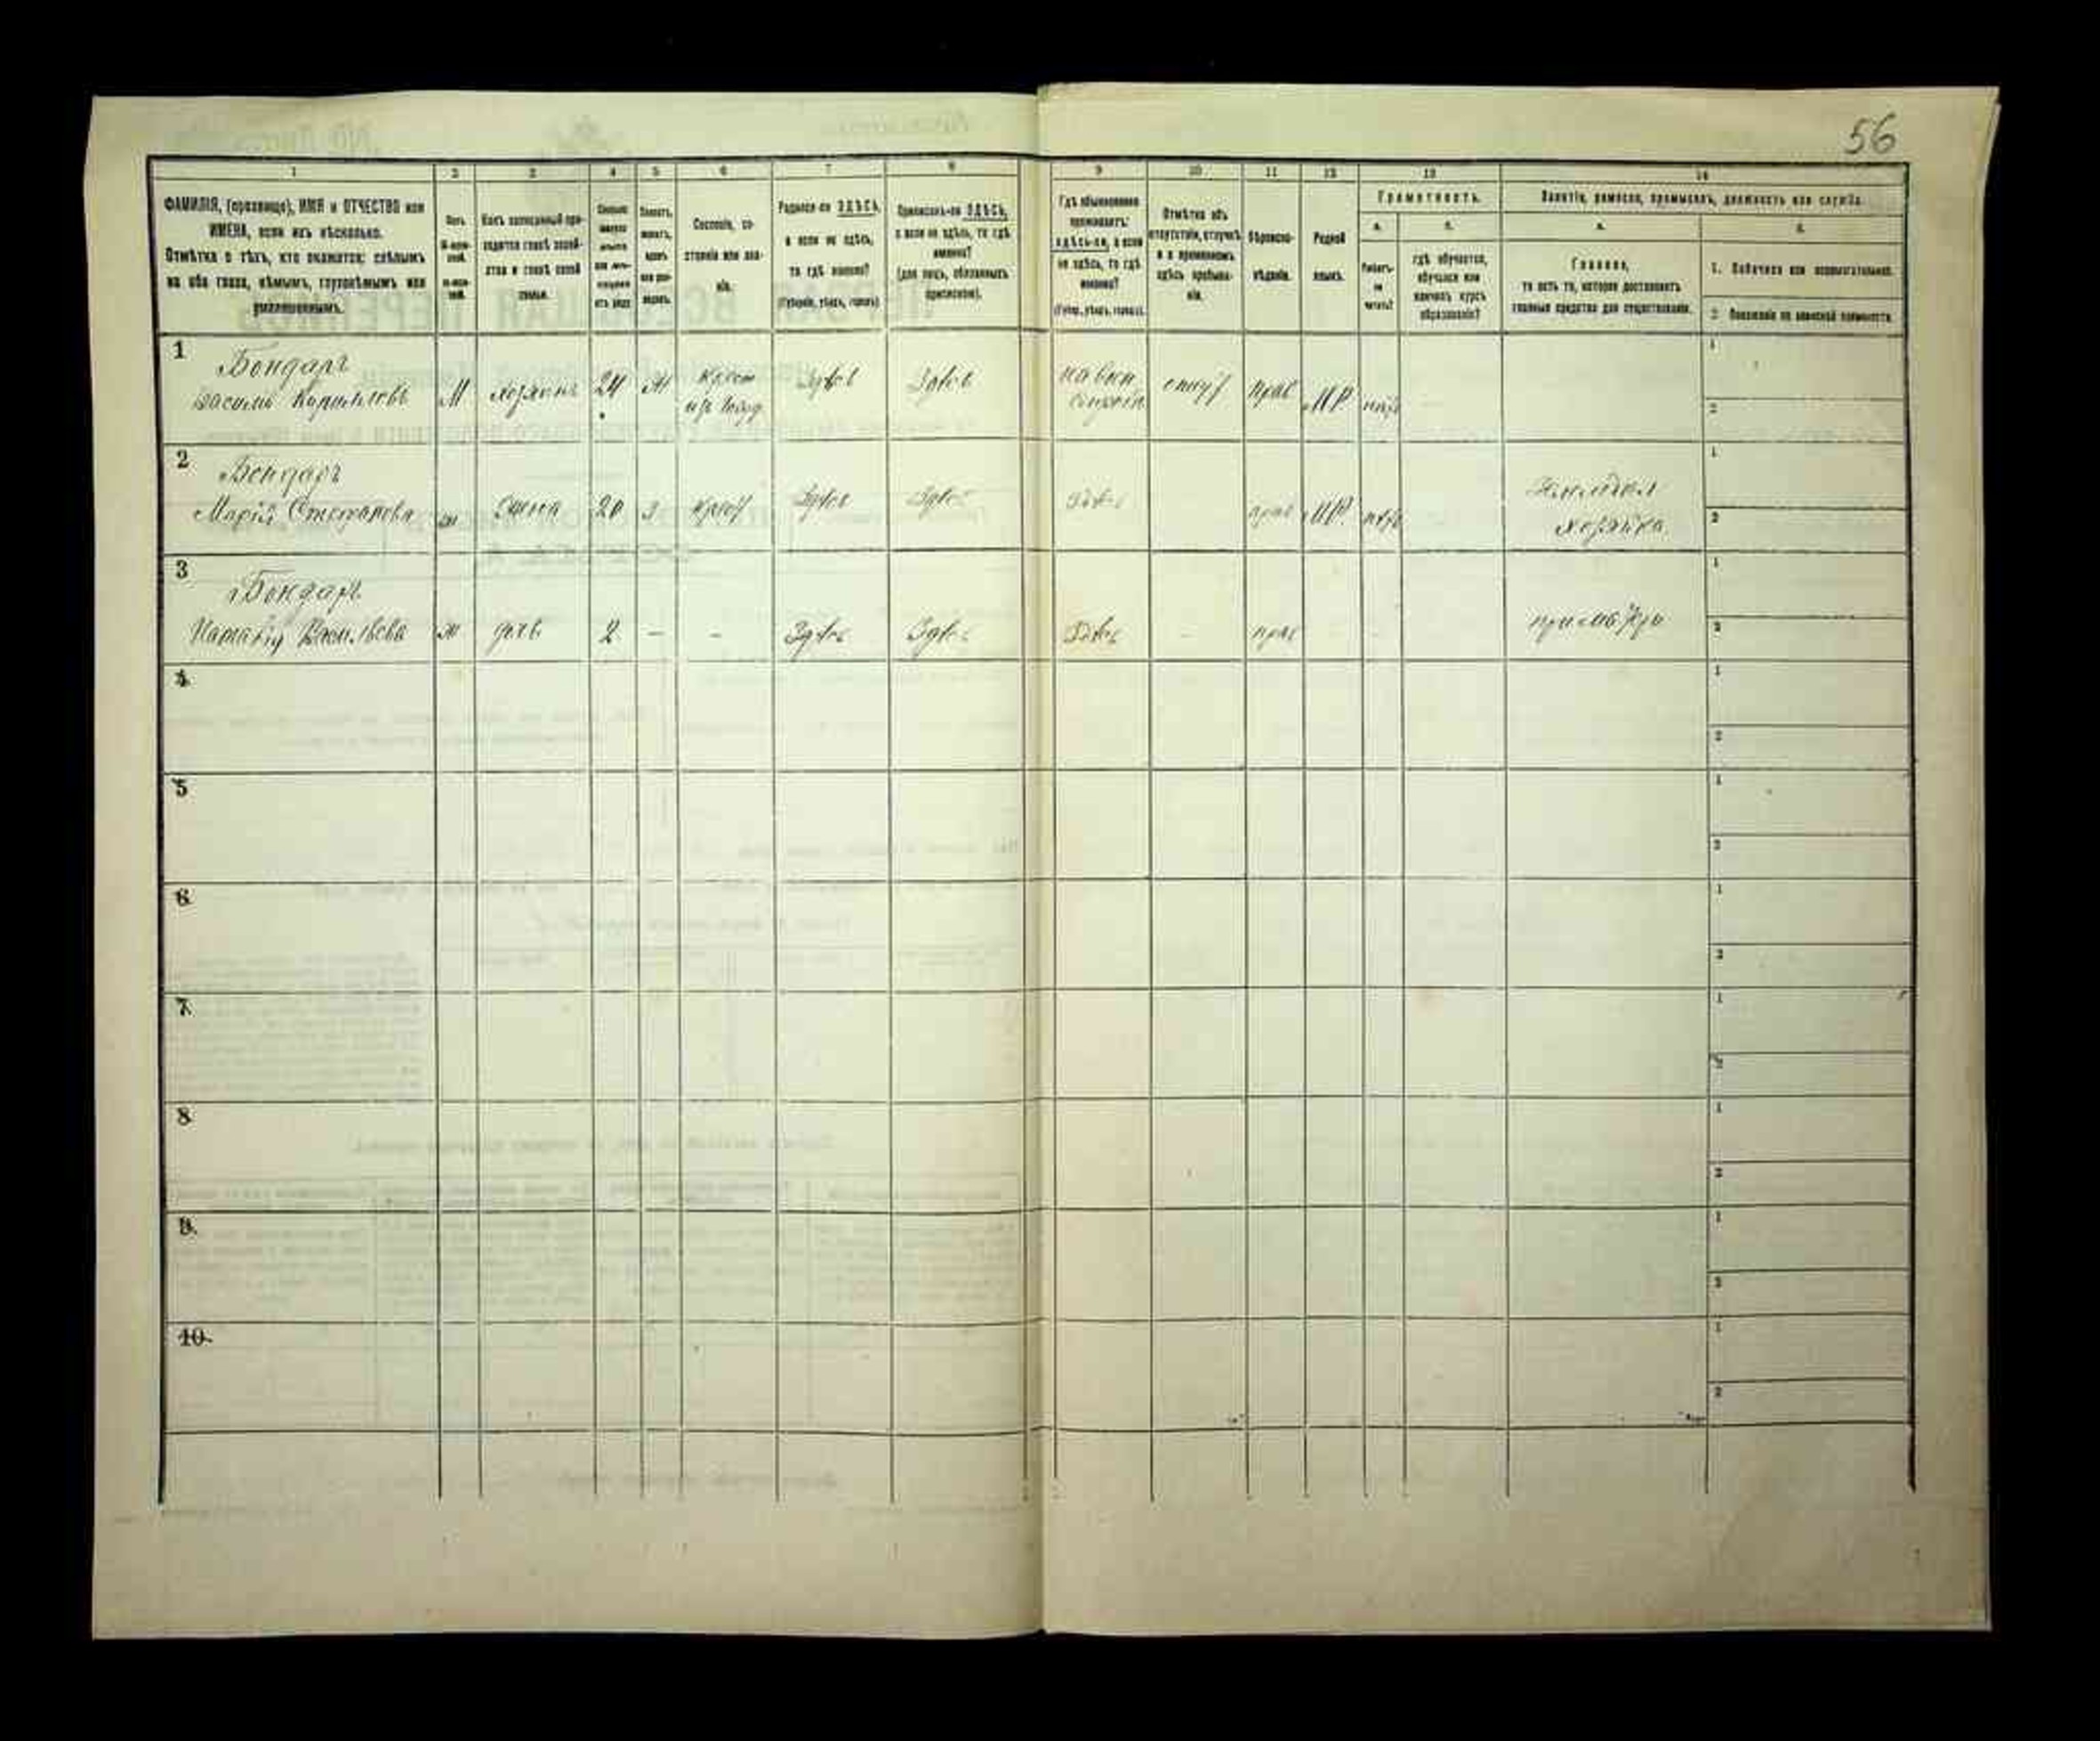 56
1 2 3 4 5 6 7 8 9 10 11 12 13 14
ФАМИЛІЯ, (прозвище), ИМЯ и ОТЧЕСТВО или
ИМЕНА, если ихъ нѣсколько.
Отмѣтка о тѣхъ, кто окажется: слѣпымъ
на оба глаза, нѣмымъ, глухонѣмымъ или
умалишеннымъ.
Полъ.
Какъ записанный приходится главѣ хозяйства и главѣ своей семьи.
Сословіе, состояніе или званіе.
Родился-ли ЗДѢСЬ,
а если не здѣсь,
то гдѣ именно?
(Губернія, уѣздъ, городъ).
Приписанъ-ли ЗДѢСЬ,
а если не здѣсь, то гдѣ
именно?
(для лицъ, обязанныхъ
припискою).
Гдѣ обыкновенно
проживаетъ:
здѣсь-ли, а если
не здѣсь, то гдѣ
именно?
(Губер., уѣздъ, городъ).
Отмѣтка объ
отсутствіи, отлучкѣ
и о временномъ
здѣсь пребываніи.
Вѣроисповѣданіе.
Родной
языкъ.
Грамотность.
а. б.
Умѣетъ-
ли
читать?
гдѣ обучается,
обучался или
кончилъ курсъ
образованія?
Занятіе, ремесло, промыселъ, должность или служба.
а. б.
Главное,
то есть то, которое доставляетъ
главныя средства для существованія.
1. Побочное или вспомогательное.
2. Положеніе по воинской повинности.
1 Бондарь
Василій Кирилловъ М хозяинъ 24 Ж Крест Здѣсь Здѣсь отлу Прав МР.
2 Бондарь
Марія Степанова ж жена 20 З Крест Здѣсь Здѣсь Здѣсь прав МР.
хозяйка
3 Бондарь
Наталія Васильева ж дочь 2 - - Здѣсь Здѣсь Здѣсь прав
4.
5
6
7.
8
9.
10.